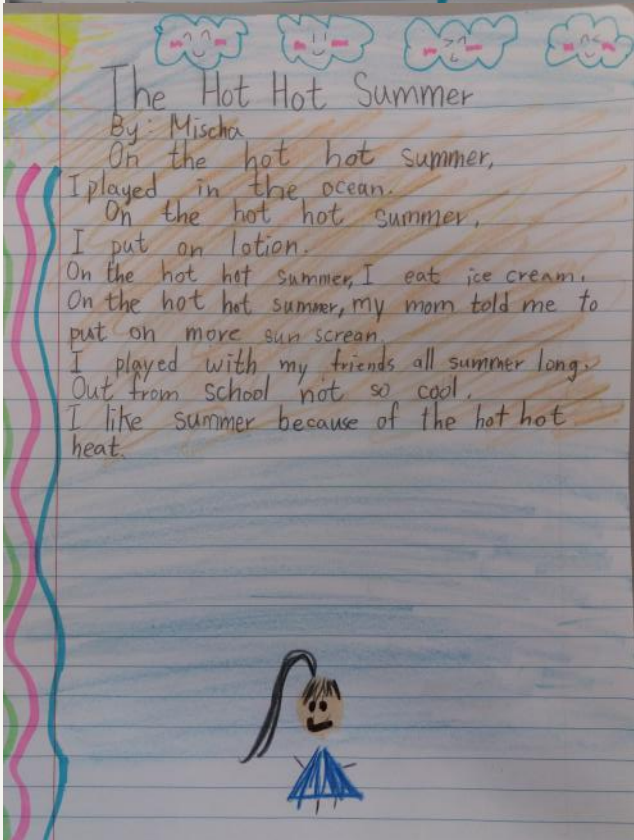 The Hot Hot Summer
By: Mischa
On the hot hot summer,
I played in the ocean.
On the hot hot summer,
I put on lotion.
On the hot hot summer, I eat ice cream.
On the hot hot summer, my mom told me to
put on more sun screan.
I played with my friends all summer long.
Out from school not so cool.
I like summer because of the hot hot
heat.